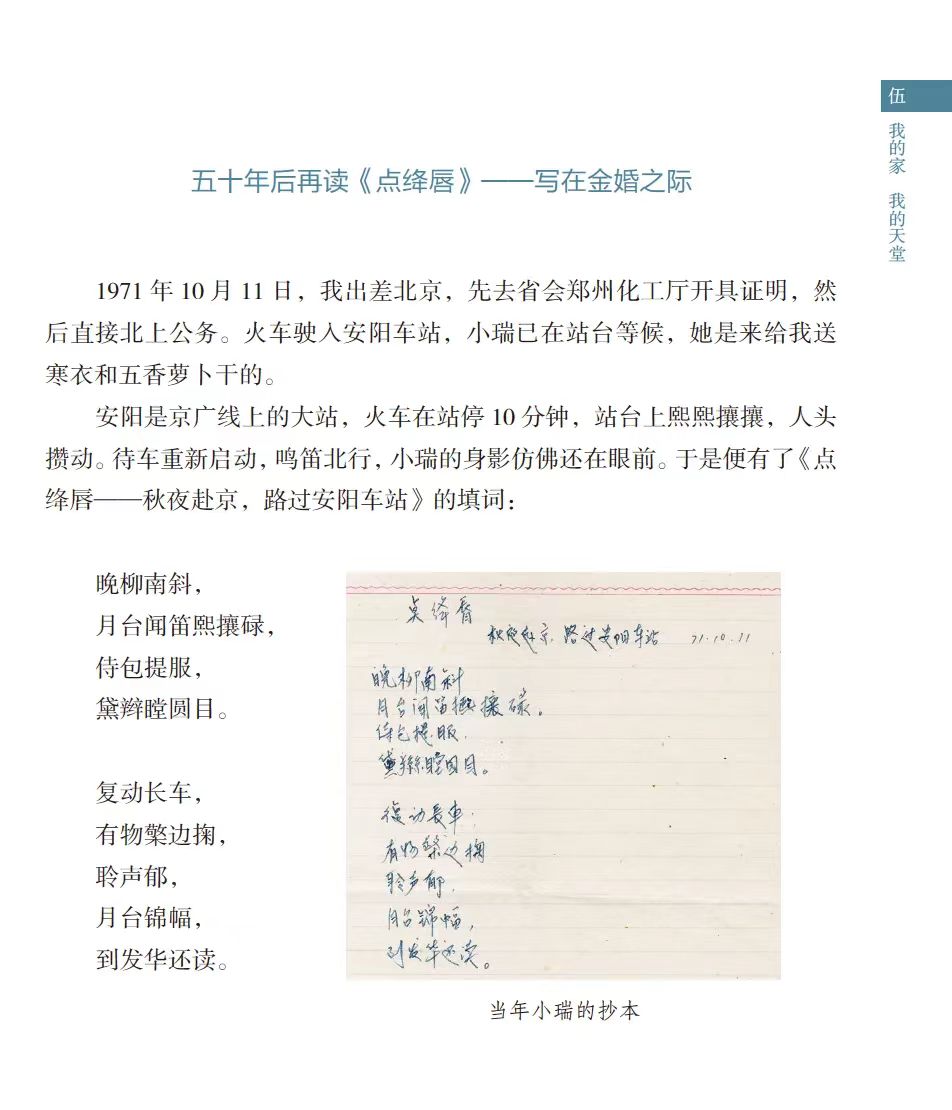 伍
我的家 我的天堂
五十年后再读《点绛唇》——写在金婚之际
1971 年 10 月 11 日，我出差北京，先去省会郑州化工厅开具证明，然
后直接北上公务。火车驶入安阳车站，小瑞已在站台等候，她是来给我送
寒衣和五香萝卜干的。
安阳是京广线上的大站，火车在站停 10 分钟，站台上熙熙攘攘，人头
攒动。待车重新启动，鸣笛北行，小瑞的身影仿佛还在眼前。于是便有了《点
绛唇——秋夜赴京，路过安阳车站》的填词：
晚柳南斜，
月台闻笛熙攘碌，
侍包提服，
黛辫瞠圆目。
复动长车，
有物檠边掬，
聆声郁，
月台锦幅，
到发华还读。
点绛唇
秋夜赴京，路过安阳车站 71.10.11
晚柳南斜
月台闻笛熙攘碌。
侍包提服，
黛辫瞠园目。
復动長車，
有物檠边掬
聆声郁，
月台锦幅，
到发华还读。
当年小瑞的抄本